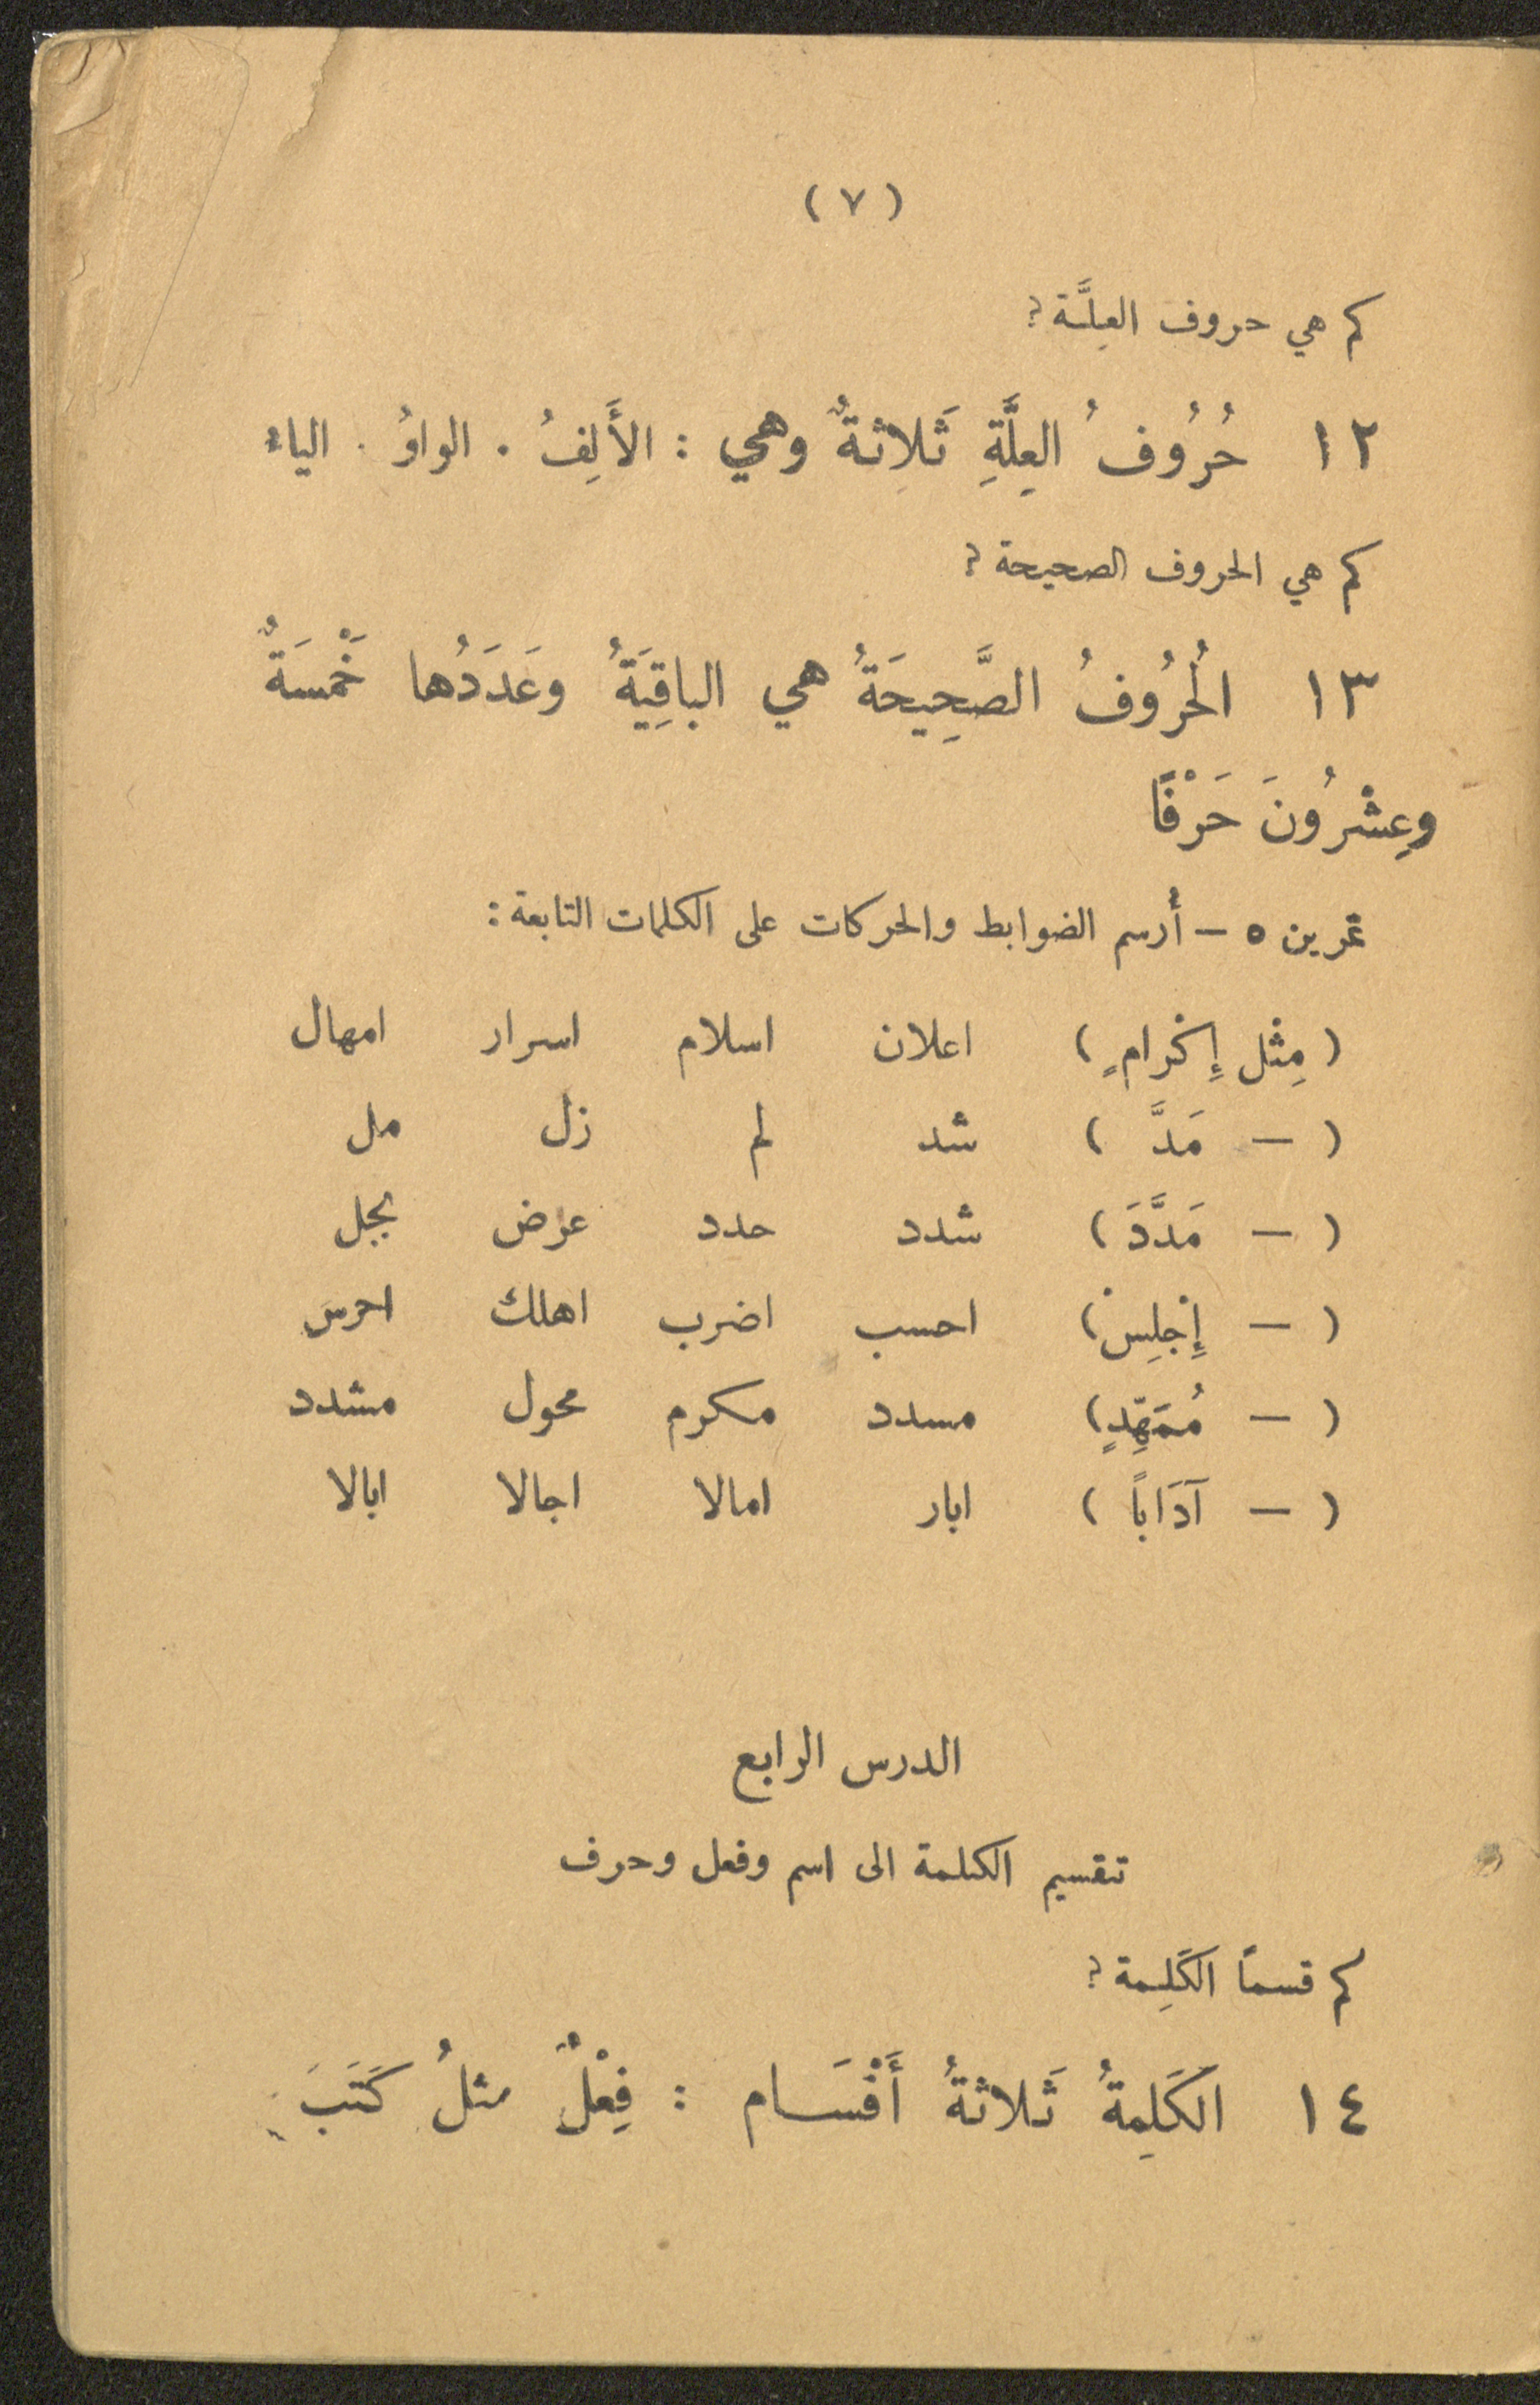 ( ٧ )
كم هي حروف العِلَّة ؟
١٢ حُرُوفُ العِلَّةِ ثَلاِثةٌ وهي : الأَلِفُ . الواوُ . الياء
كم هي الحروف الصحيحة ؟
١٣ الْحُرُوفُ الصَّحِيحَةُ هي الباقِيَةُ وعَدَدُها خَمْسَةٌ
وعِشْرُونَ حَرْفًا
تمرين ٥ – أُرسم الضوابط والحركات على الكلمات التابعة :
( مِثْل إِكْرامٍ ) اعلان اسلام اسرار امهال
( — مَدَّ ) شد لم زل مل
( — مَدَّدَ ) شدد حدد عرض بجل
( — إِجْلِسْ ) احسب اضرب اهلك احرس
( — مُمَهِّدٍ ) مسدد مكرم محول مشدد
( — آدَاباً ) ابار امالا اجالا ابالا
الدرس الرابع
تقسيم الكلمة الى اسم وفعل وحرف
كم قسماً الكَلِمة ؟
١٤ الكَلِمةُ ثَلاثةُ أَقْسَام : فِعْلٌ مثلُ كَتَبَ